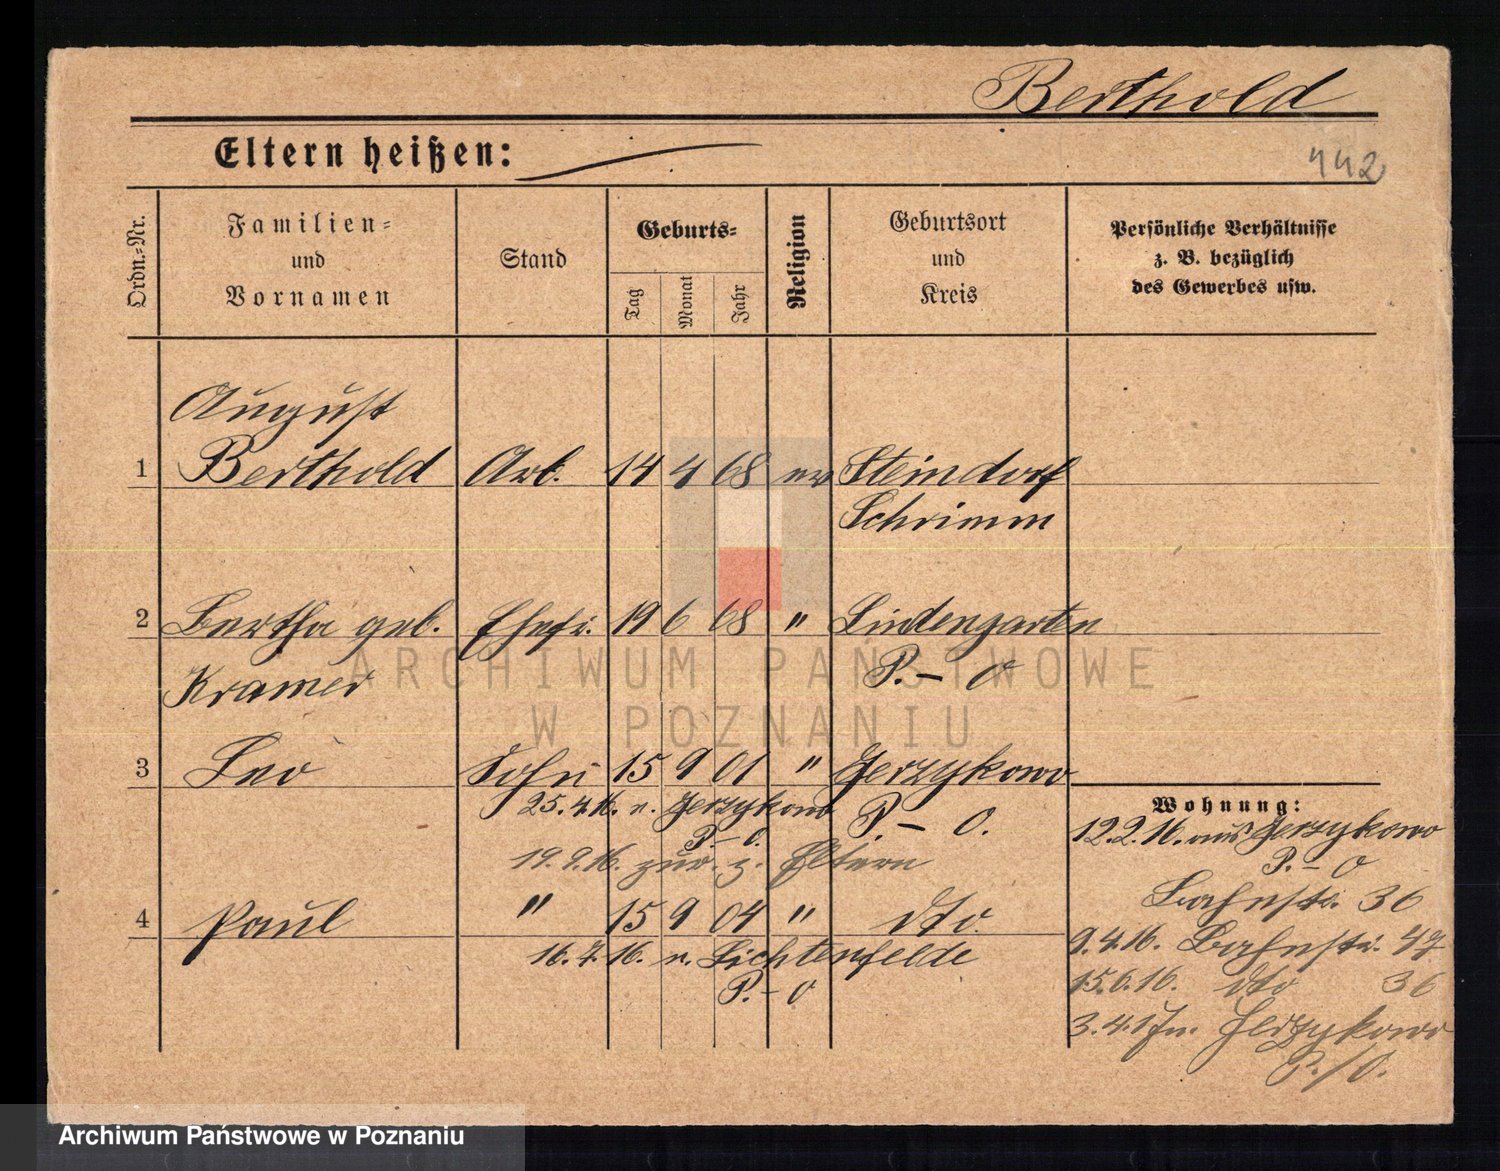 Berthold
Eltern heißen:
442
Ordn.=Nr.
Familien=
und
Vornamen
Stand
Geburts=
Tag
Monat
Jahr
Religion
Geburtsort
und
Kreis
Persönliche Verhältnisse
z. B. bezüglich
des Gewerbes usw.
August
1 Berthold Arb. 14 4 68 ev Steindorf
Schrimm
2 Bertha geb. Ehefr. 19 6 68 " Lindengarten
Kramer P. – O
3 Leo Sohn 15 9 01 " Jerzykowo
25.4.16. n. Jerzykowo P. – O.
P. – O.
19.9.16. zur. z. Eltern
4 Paul " 15 9 04 " dto.
16.7.16. n. Lichtenfelde
P. – O
Wohnung:
12.2.16. aus Jerzykowo
P. – O
Bahnstr. 36
9.4.16. Bahnstr. 47
15.6.16. dto 36
3.4.17 n. Jerzykowo
P./O.
ARCHIWUM PAŃSTWOWE
W POZNANIU
Archiwum Państwowe w Poznaniu